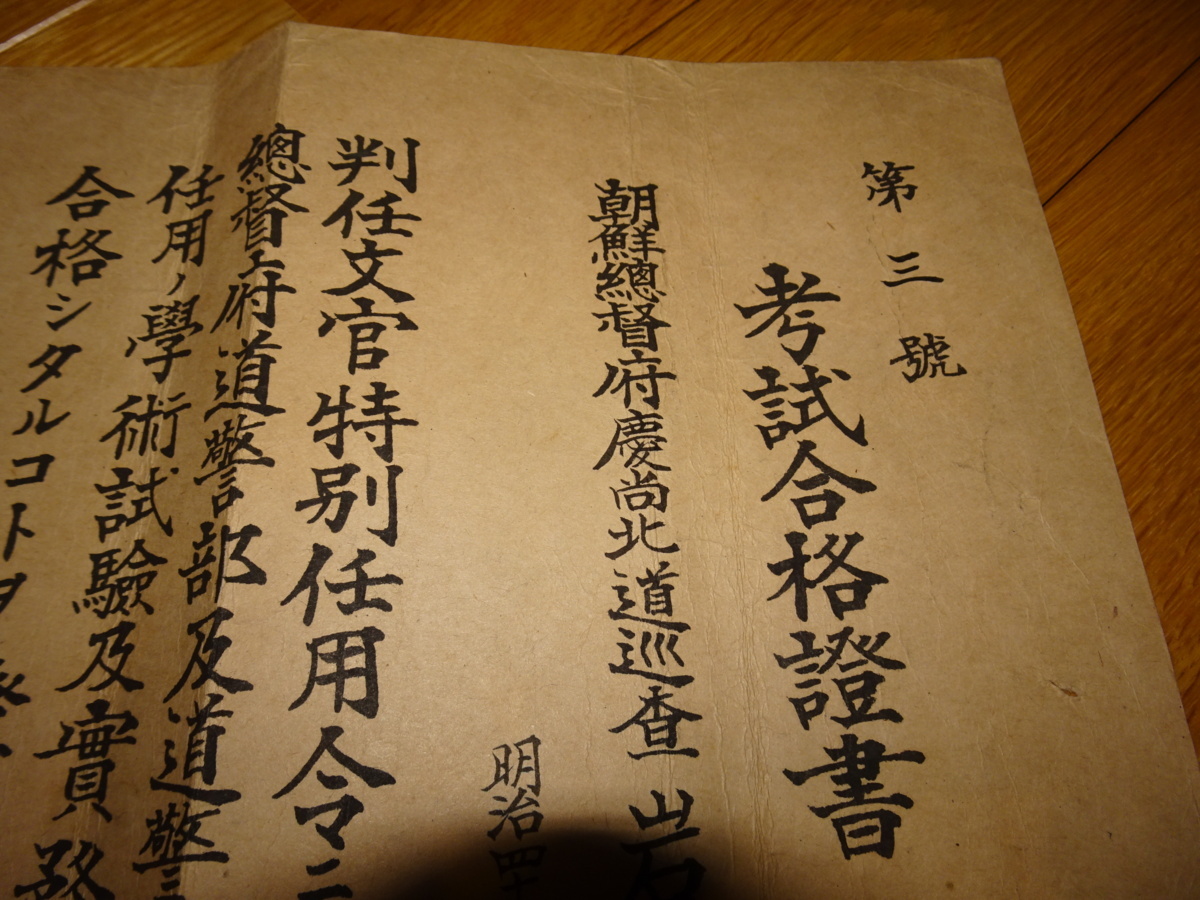 第三號
考試合格證書
朝鮮總督府慶尚北道巡査
明治四十
判任文官特別任用令ニ
總督府道警部及道警
任用ノ學術試驗及實務
合格シタルコトヲ